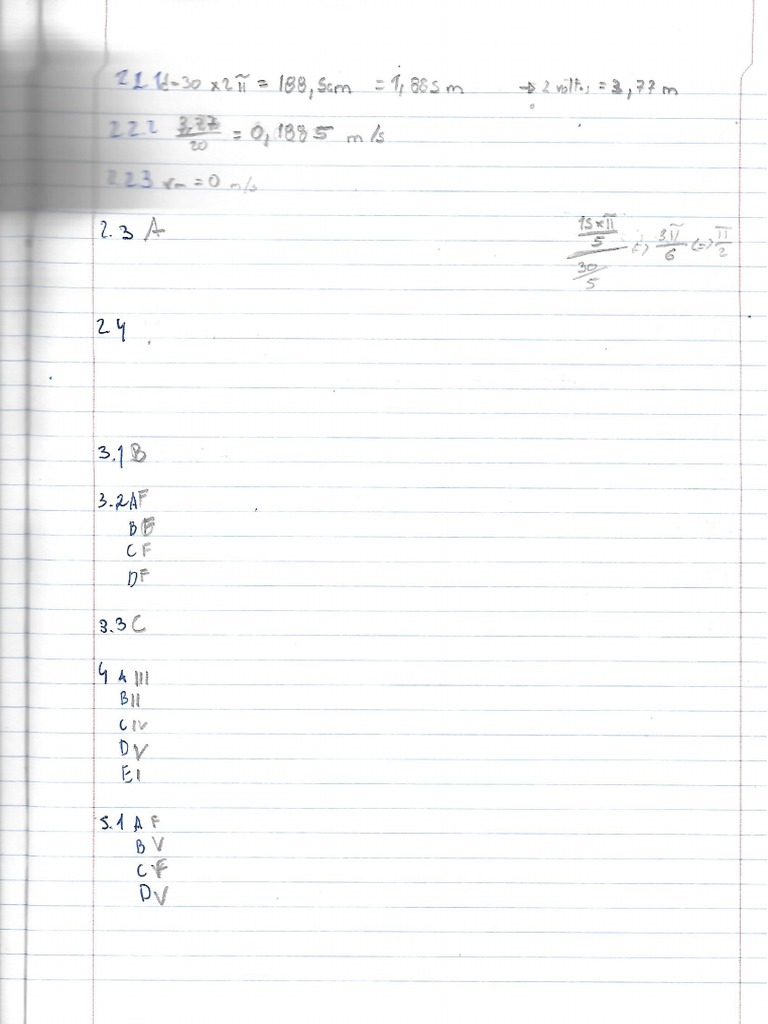 2.2.1 d=30×2π = 188,5cm = 1,885 m → 2 voltas = 3,77 m
2.2.2 3,77/20 = 0,1885 m/s
2.2.3 vm = 0 m/s
2.3 A
(15×π/5)/(30/5) (=) 3π/6 (=) π/2
2.4
3.1 B
3.2 A F
B F
C F
D F
3.3 C
4 A III
B II
C IV
D V
E I
5.1 A F
B V
C F
D V